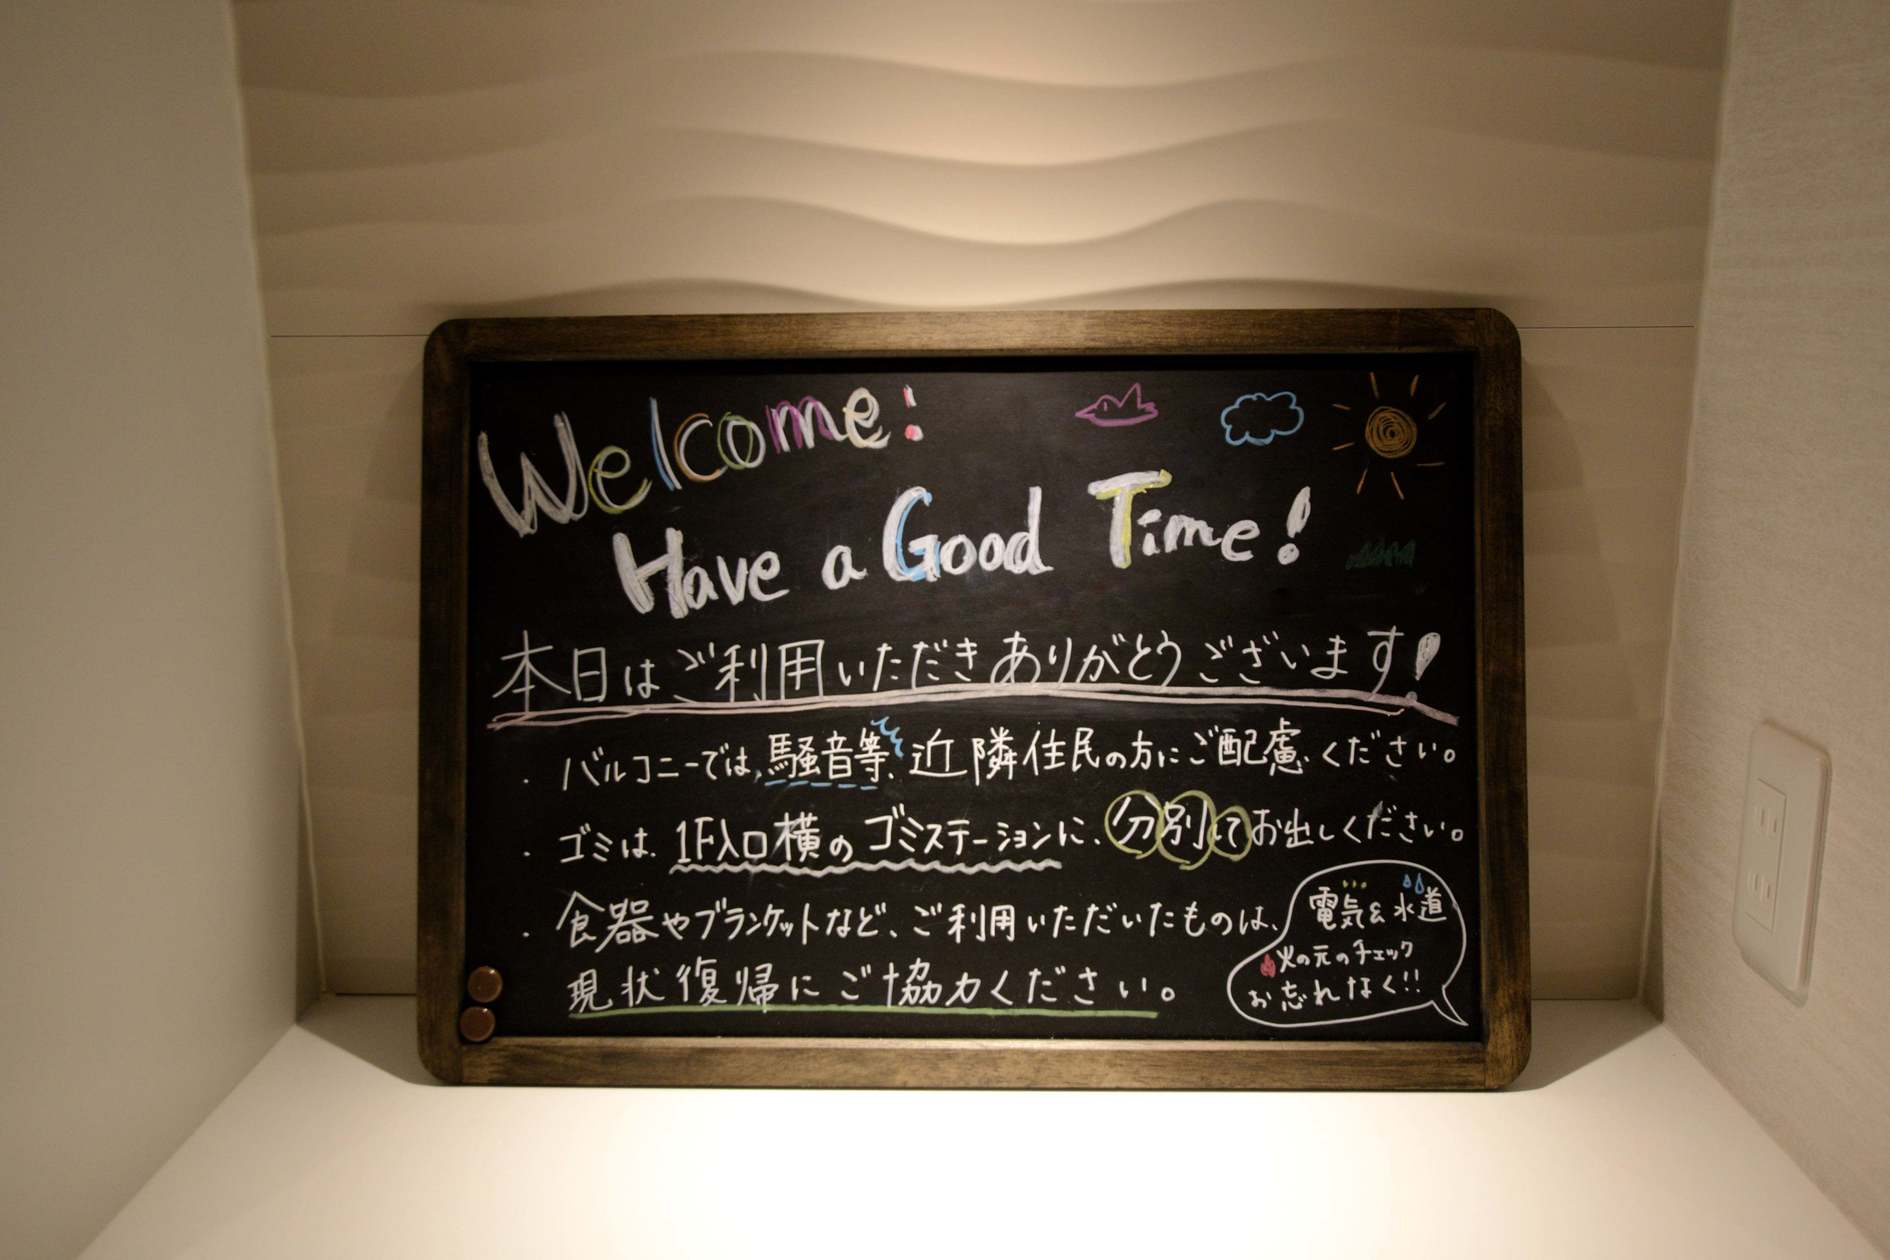 Welcome!
Have a Good Time!
本日はご利用いただきありがとうございます!
・バルコニーでは、騒音等、近隣住民の方にご配慮ください。
・ゴミは、1F入口横のゴミステーションに、分別してお出しください。
・食器やブランケットなど、ご利用いただいたものは、
現状復帰にご協力ください。
電気&水道
火の元のチェック
お忘れなく!!